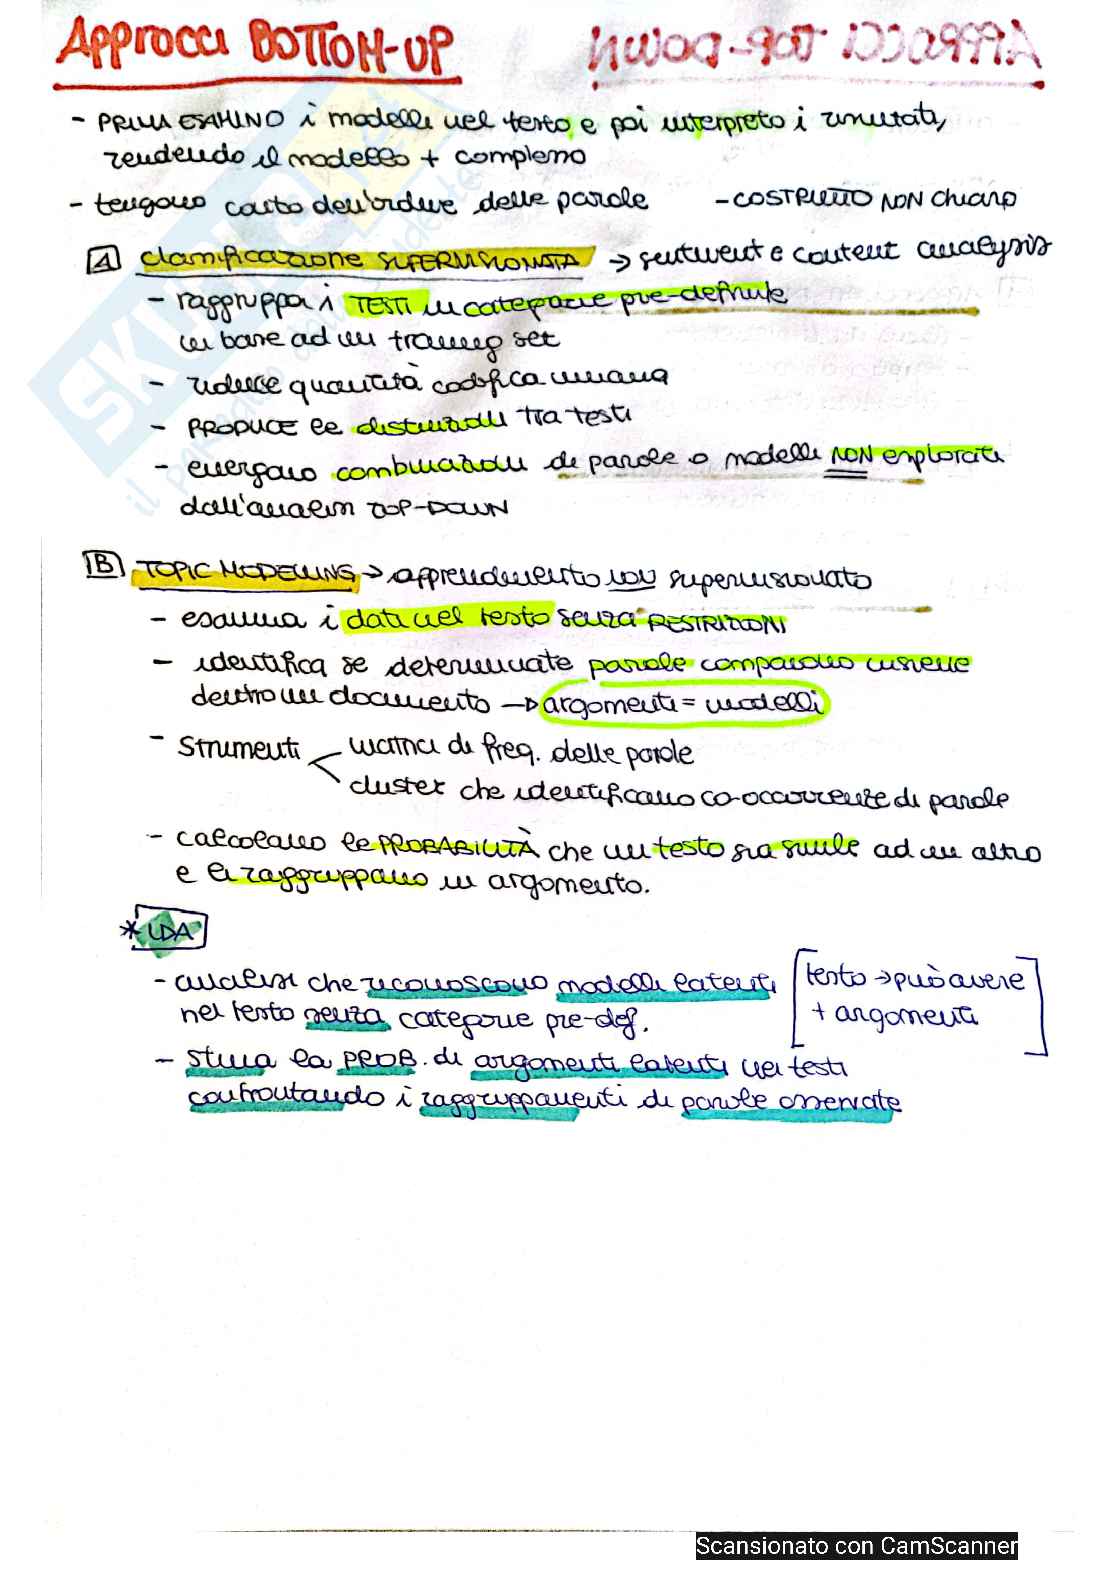 Approcci BOTTOM-UP
APPROCCI TOP-DOWN
- PRIMA ESAMINO i modelli nel testo e poi interpreto i risultati,
rendendo il modello + complesso
- tengono conto dell'ordine delle parole - COSTRUTTO NON chiaro
A classificazione SUPERVISIONATA → sentiment e content analysis
- raggruppa i TESTI in categorie pre-definite
in base ad un training set
- riduce quantità codifica umana
- PRODUCE le distinzioni tra testi
- emergono combinazioni di parole o modelli NON esplorati
dall'analisi TOP-DOWN
B TOPIC MODELLING → apprendimento non supervisionato
- esamina i dati nel testo senza RESTRIZIONI
- identifica se determinate parole compaiono insieme
dentro un documento → argomenti = modelli
- Strumenti
matrici di freq. delle parole
cluster che identificano co-occorrenze di parole
- calcolano le PROBABILITÀ che un testo sia simile ad un altro
e li raggruppano in argomento.
* LDA
- analisi che riconoscono modelli latenti [testo → può avere
nel testo senza categorie pre-def. + argomenti]
- stima la PROB. di argomenti latenti nei testi
confrontando i raggruppamenti di parole osservate
SKUOLA.net
il paradiso dello studente
Scansionato con CamScanner